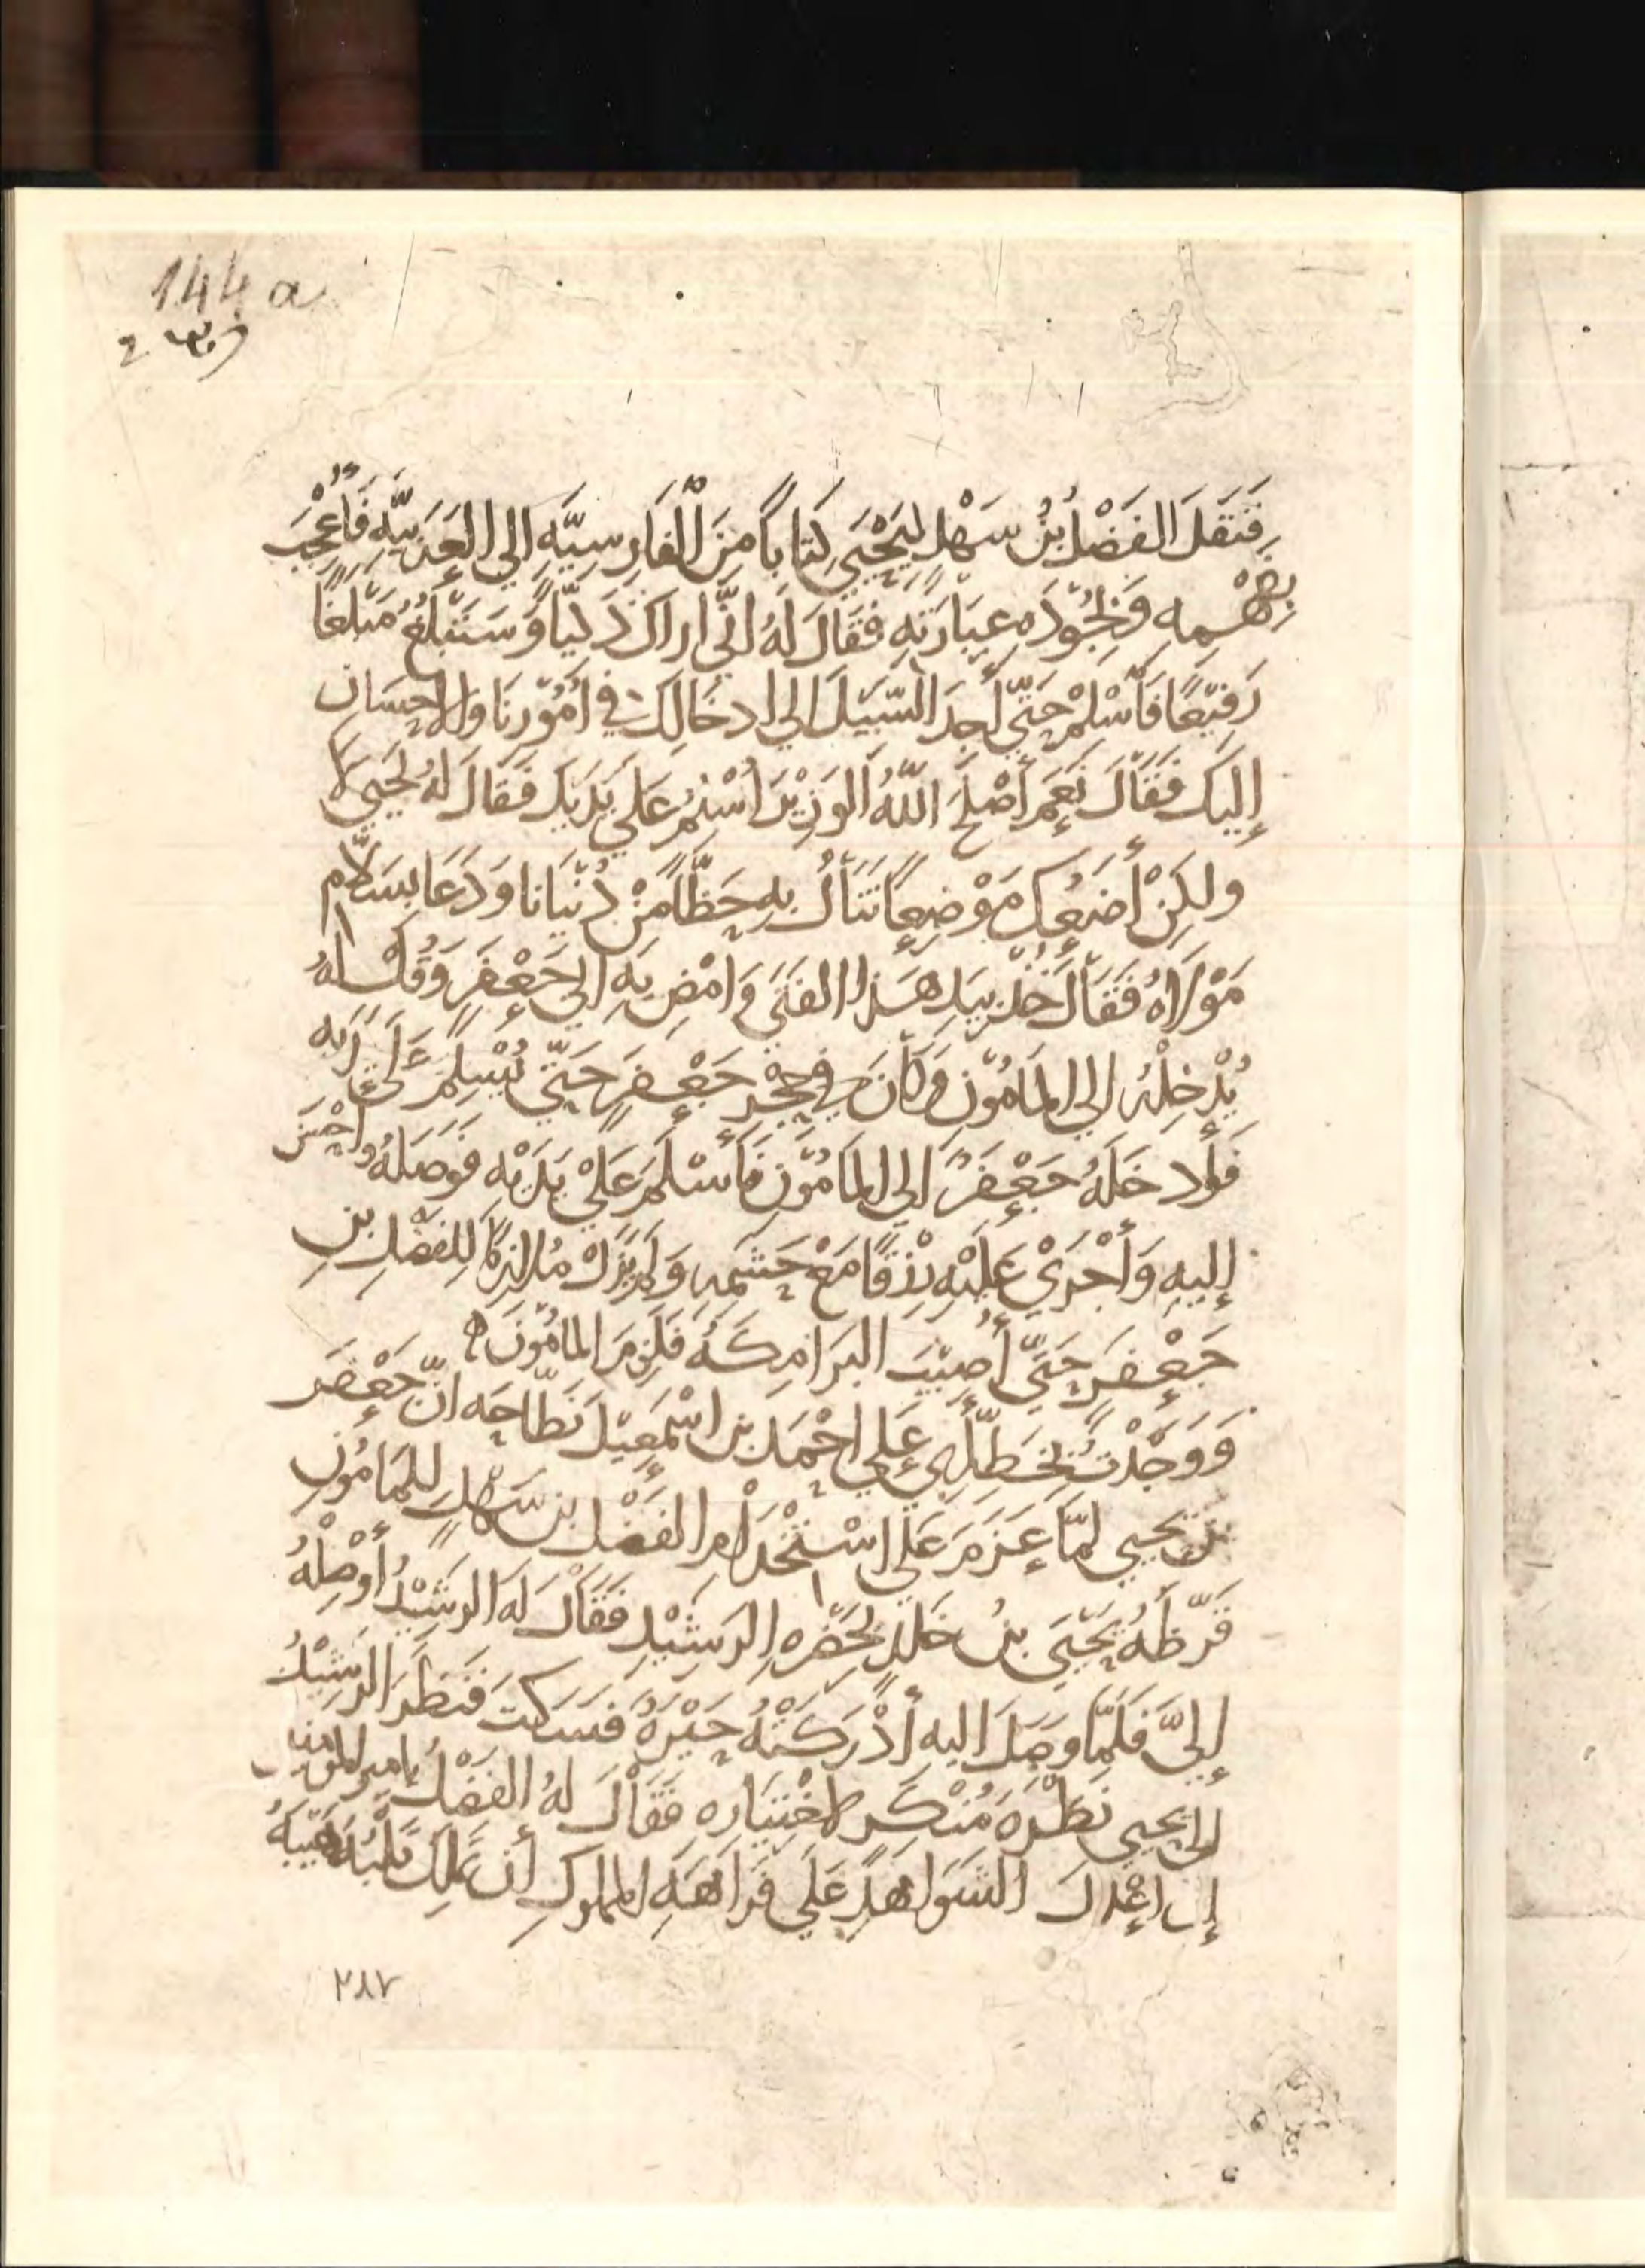 144 a
فَنَقَلَ الفَضْلُ بْنُ سَهْلٍ لِيَحْيَى كِتَابًا مِنَ الْفَارِسِيَّهِ إلى العَرَبِيَّهِ فَأُعْجِبَ
بفَهْمِه وَبِجُوْدَهِ عِبَارَتِهِ فَقَالَ لَهُ انّى اراكَ ذَكِيًّا وَسَتَبْلُغُ مَبْلَغًا
رَفِيْعًا فَأَسْلِمْ حَتّى أَجِدَ السَّبِيْلَ إلى ادخَالِكَ فى أُمُوْرِنَا وَالاِحْسَانِ
إِلَيكَ فَقَالَ نَعَم أَصْلَحَ اللهُ الوَزِيْرَ اُسْلِمُ عَلَى يَدَيكَ فَقَالَ لهُ يَحيَى لَا
ولكِنْ أَضَعُكَ مَوْضِعًا تَنَالُ بِهِ حَظًّا مِنْ دُنْيَانا وَدَعَا بِسَلَّامٍ
مَوْلَاهُ فَقَالَ خُذْ بِيَدِ هَذا الفَتَى وَامْضِ بِهِ إلى جَعْفَرٍ وَقُلْ لهُ
يُدْخِلْهُ إلى المَامُوْنِ وَكَانَ فى حِجْرِ جَعْفَرٍ حَتّى يُسْلِمَ عَلَى يَدَيه
فَأدخَلَهُ جَعْفَرٌ إلى المَامُوْنِ فَأَسْلَمَ عَلَىْ يَدَيْهِ فَوَصَلَهُ وَاحْسَنَ
إِليهِ وَأَجْرَىْ عَلَيْهِ رِزْقًا مَعَ حَشَمِهِ وَلَم يَزَلْ مُلازِمًا لِلفَضْلِ بنِ
جَعْفَرٍ حَتّى أُصِيْبَ البَرَامِكَهُ فَلَزِمَ المَامُوْنَ ه
وَوَجَدْتُ بِخَطِّ أَبِى عَلى احْمَدَ بنِ اسْمَعِيْلَ نَطَّاحَه انّ جَعْفَرَ
بنَ يَحيى لمّا عَزَمَ عَلى اسْتِخْدَامِ الفَضْلِ بنِ سَهْلٍ لِلمَامُونِ
قَرَّظَهُ يَحْيَى بنُ خَلدٍ بِحَضْرَهِ الرَشِيْدِ فَقَالَ لَهُ الرَشِيْدُ أَوْصِلْهُ
إِلَيَّ فَلَمّا وصَلَ اليه أَدْرَكَتْهُ حَيْرَهٌ فَسَكَتَ فَنَظَرَ الرَشِيْدُ
إلى يَحيى نَظْرَهَ مُنْكِرٍ لاخْتِيَاره فَقَالَ لهُ الفَضْلُ يامير المومنين
إن اعْدَلَ الشَوَاهِدِ عَلَى فَرَاهَهِ المملُوكِ أن يَملِكَ قَلْبَهُ هَيْبَهُ
٢٨٧